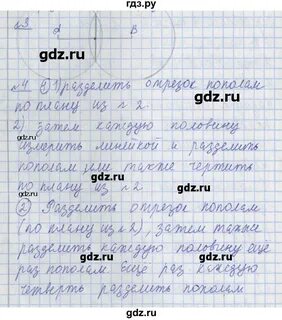 гдз.ру
№3
А В
gdz.ru gdz.ru
№4 ① 1) разделить отрезок пополам
по плану из №2.
2) затем каждую половину
измерить линейкой и разделить
пополам или также чертить
по плану из №2
② Разделить отрезок пополам
(по плану из №2), затем также
разделить каждую половину еще
раз пополам. Еще раз каждую
четверть разделить пополам
gdz.ru gdz.ru
gdz.ru gdz.ru
gdz.ru gdz.ru